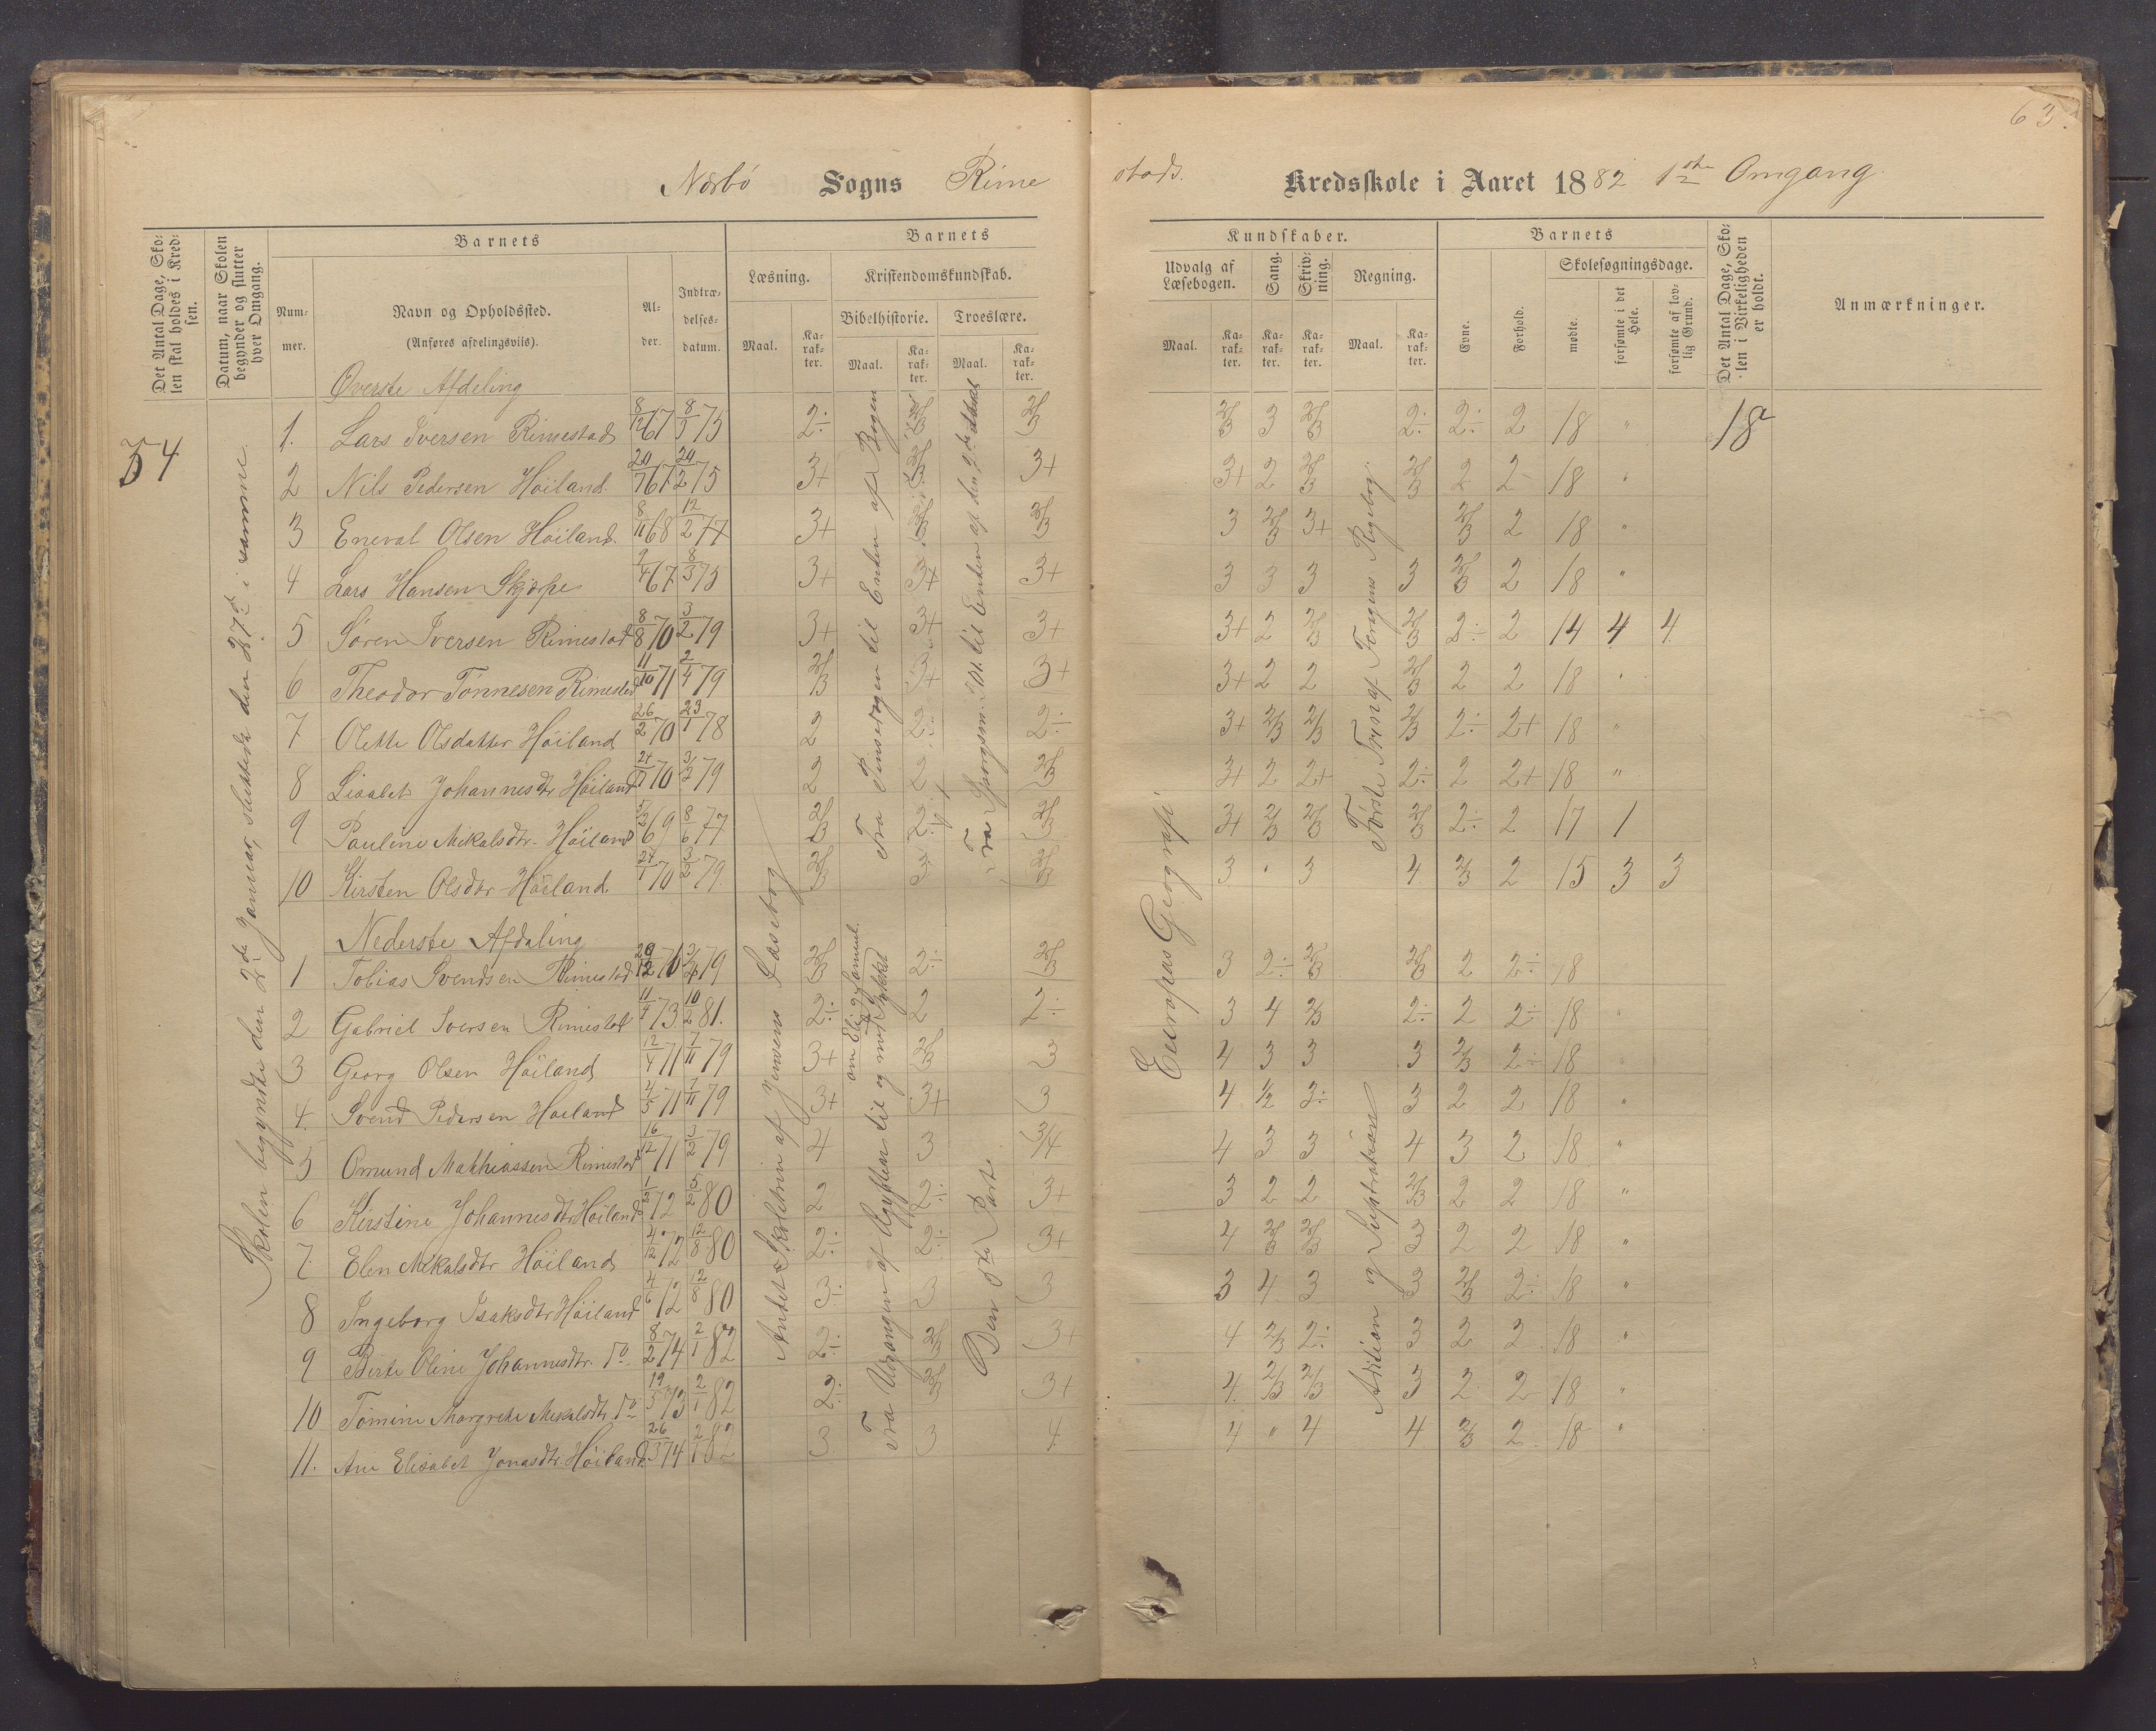 63.
Nærbø Sogns Rime
stads. Kredsskole i Aaret 1882 1ste Omgang.
Det Antal Dage, Skolen skal holdes i Kredsen.
Datum, naar Skolen begynder og slutter hver Omgang.
Barnets
Nummer.
Navn og Opholdssted.
(Anføres afdelingsviis).
Alder.
Indtrædelsesdatum.
Barnets
Læsning.
Kristendomskundskab.
Bibelhistorie. Troeslære.
Maal. Karakter. Maal. Karakter. Maal. Karakter.
Kundskaber.
Udvalg af Læsebogen. Sang. Skrivning. Regning.
Maal. Karakter. Karakter. Karakter. Maal. Karakter.
Barnets
Evne. Forhold.
Skolesøgningsdage.
mødte. forsømte i det Hele. forsømte af lovlig Grund.
Det Antal Dage, Skolen i Virkeligheden er holdt.
Anmærkninger.
54
Skolen begyndte den 2de Januar, sluttede den 27d i samme.
Øverste Afdeling
1. Lars Iversen Rimestad 8/12 67 8/3 75 2÷ 2/3 2/3 2/3 3 2/3 2÷ 2÷ 2 18 " 18
2 Nils Pedersen Höiland. 20/7 67 20/2 75 3+ 2/3 3+ 3+ 2 2/3 2/3 2 2 18 "
3 Eneval Olsen Höiland. 8/11 68 12/2 77 3+ 2/3 3 2/3 3+ 2/3 2 18 "
4 Lars Hansen Skjærpe 9/4 67 8/3 75 3+ 3+ 3+ 3 3 3 3 2/3 2 18 "
5 Søren Iversen Rimestad 8/8 70 3/2 79 3+ 3+ 3+ 3+ 2 2/3 2/3 2÷ 2 14 4 4
6 Theodor Tønnesen Rimestad 11/10 71 2/4 79 2/3 3+ 3+ 3+ 2 2 2/3 2 2 18 "
7 Olette Olsdatter Höiland 26/2 70 23/1 78 2 2÷ 2÷ 3+ 2/3 2/3 2/3 2÷ 2+ 18 "
8 Lisabet Johannesdtr Höiland 70 3/2 79 2 2÷ 2/3 3+ 2 2+ 2÷ 2 2+ 18 "
9 Pauline Mikalsdtr. Höiland 69 8/6 77 2/3 2÷ 2/3 3+ 2/3 2/3 2/3 2÷ 2 17 1
10 Kirsten Olsdtr Höiland 24/1 70 3/2 79. 2/3 3 2/3 3 " 3 4 2/3 2 15 3 3
Nederste Afdeling
1 Tobias Svendsen Rimestad 70 79 2/3 2÷ 2/3 3 2÷ 2/3 2/3 2 2÷ 18
2 Gabriel Iversen Rimestad 11/4 73 10/2 81. 2÷ 2 2÷ 3 4 2/3 2÷ 2 2÷ 18 "
3 Georg Olsen Höiland 12/4 71 7/11 79 3+ 2/3 3 4 3 3 3 2/3 2÷ 18 "
4. Svend Pedersen Höiland 4/5 71 7/11 79 3+ 3+ 3 4 1/2 2÷ 3 2 2 18 "
5 Omund Mathiassen Rimestad 16/12 71 3/2 79 4 3 3/4 4 3 3 4 3 2 18 "
6 Kirstine Johannesdtr Höiland 72 80 2 2÷ 3+ 3 2 2 2/3 2 2 18 "
7. Elen Mikalsdtr Höiland 4/12 72 12/8 80 2÷ 2÷ 3+ 4 2/3 2/3 3 2 2 18 "
8 Ingeborg Isaksdtr Höiland 4/6 72 12/8 80 3÷ 3 3 3 4 3 3 2/3 2÷ 18 "
9 Berte Oline Johannesdtr. Do. 8/2 74 2/1 82 2÷ 2/3 3+ 4 2/3 2÷ 3 2 2 18 "
10 Tomine Margrete Mekalsdtr Do 19/5 73 2/1 82 2÷ 2/3 3+ 4. 2/3 2/3 3 2 2 18 "
11. Ane Elisabet Jonasdtr. Höiland. 26/3 74 2/1 82 3 3 4 4 " 4 4 2/3 2 18 "
Andet Skoletrin af Jensens Læsebog
Fra Pinsedagen til Enden af Bogen
Fra Udgangen af Ægypten til og med Stykket om Eli og Samuel.
Fra Spørgsm. 301 til Enden af den 2de Part
Den 5te Part.
Europas Geografi
Første Trin af Fergens Regnebog.
Adition og Suptraktion